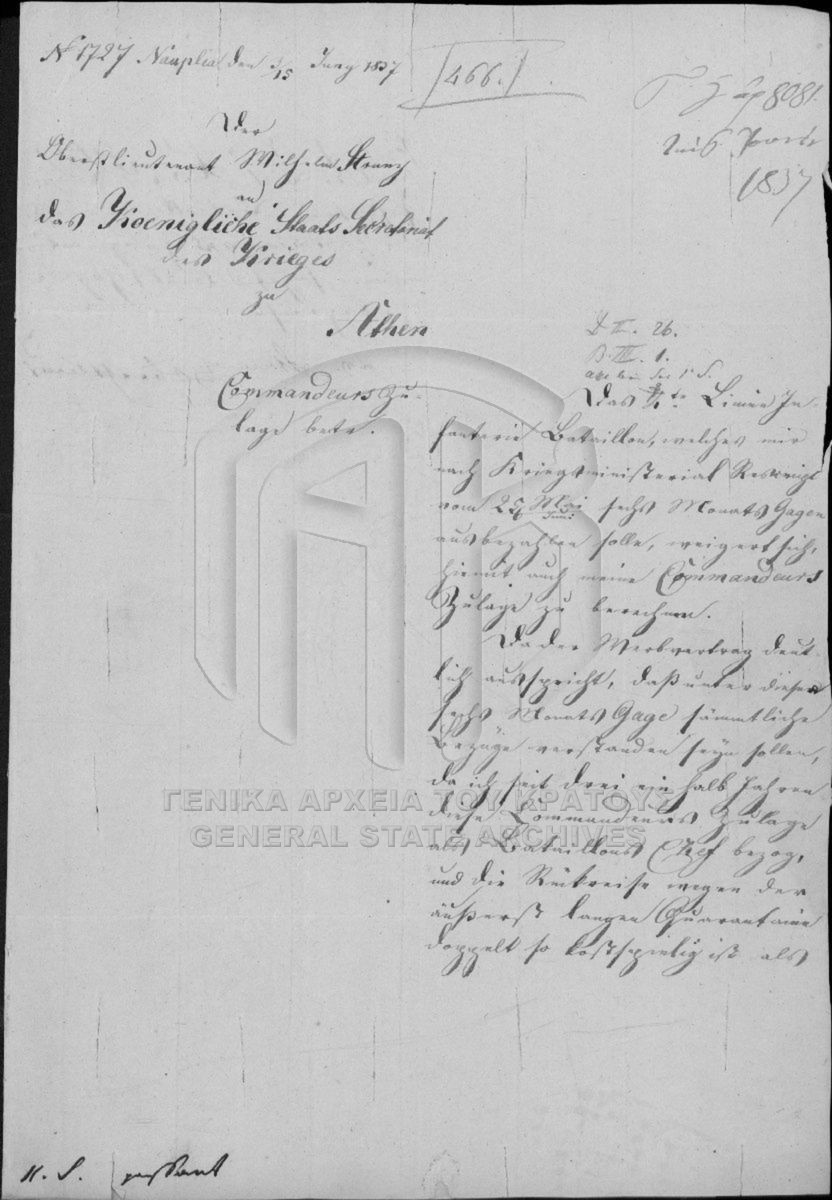 N° 1727 Nauplia den 3/15 Juny 1837
466.
8081
1837
Der
Oberstlieutenant Wilhelm Strunz
an
das Koenigliche Staats Secretariat
des Krieges
zu
Athen
D III. 26.
B. III. 1.
Commandeurs Zu-
lage betr.
Das te Linien In-
fanterie Bataillon, welches mir
nach Kriegsministerial Rescript
vom 25 Mai Juni sechs Monats Gagen
ausbezahlen solle, weigert sich,
hiemit auch meine Commandeurs
Zulage zu berechnen.
Da der Werbvertrag deut-
lich ausspricht, daß unter diesen
sechs Monats Gage sämmtliche
Bezüge verstanden seyn sollen,
da ich seit drei ein halb Jahren
diese Commandeurs Zulage
als Bataillons Chef bezog,
und die Rückreise wegen der
äußerst langen Quarantaine
doppelt so kostspielig ist als
ΓΕΝΙΚΑ ΑΡΧΕΙΑ ΤΟΥ ΚΡΑΤΟΥΣ
GENERAL STATE ARCHIVES